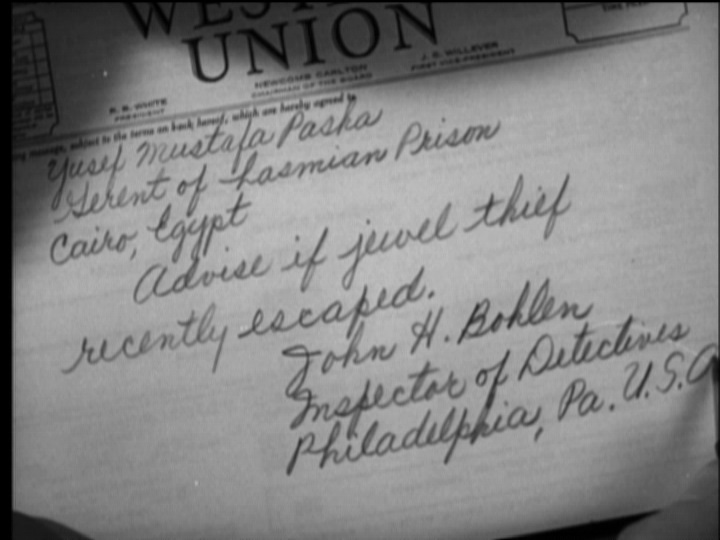 WEST
UNION
TIME FILED
NEWCOMB CARLTON
CHAIRMAN OF THE BOARD
J. C. WILLEVER
FIRST VICE-PRESIDENT
R. B. WHITE
PRESIDENT
message, subject to the terms on back hereof, which are hereby agreed to
Yusef Mustafa Pasha
Gerent of Hasmian Prison
Cairo, Egypt
Advise if jewel thief
recently escaped.
John H. Bohlen
Inspector of Detectives
Philadelphia, Pa. U.S.A